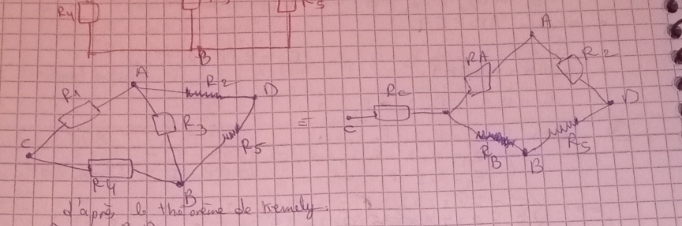 R4
R5
B
A
R2
D
R1
R3
R5
C
R4
B
=
A
RA
R2
Rc
C
D
RB
B
R5
d'après le théorème de kennely